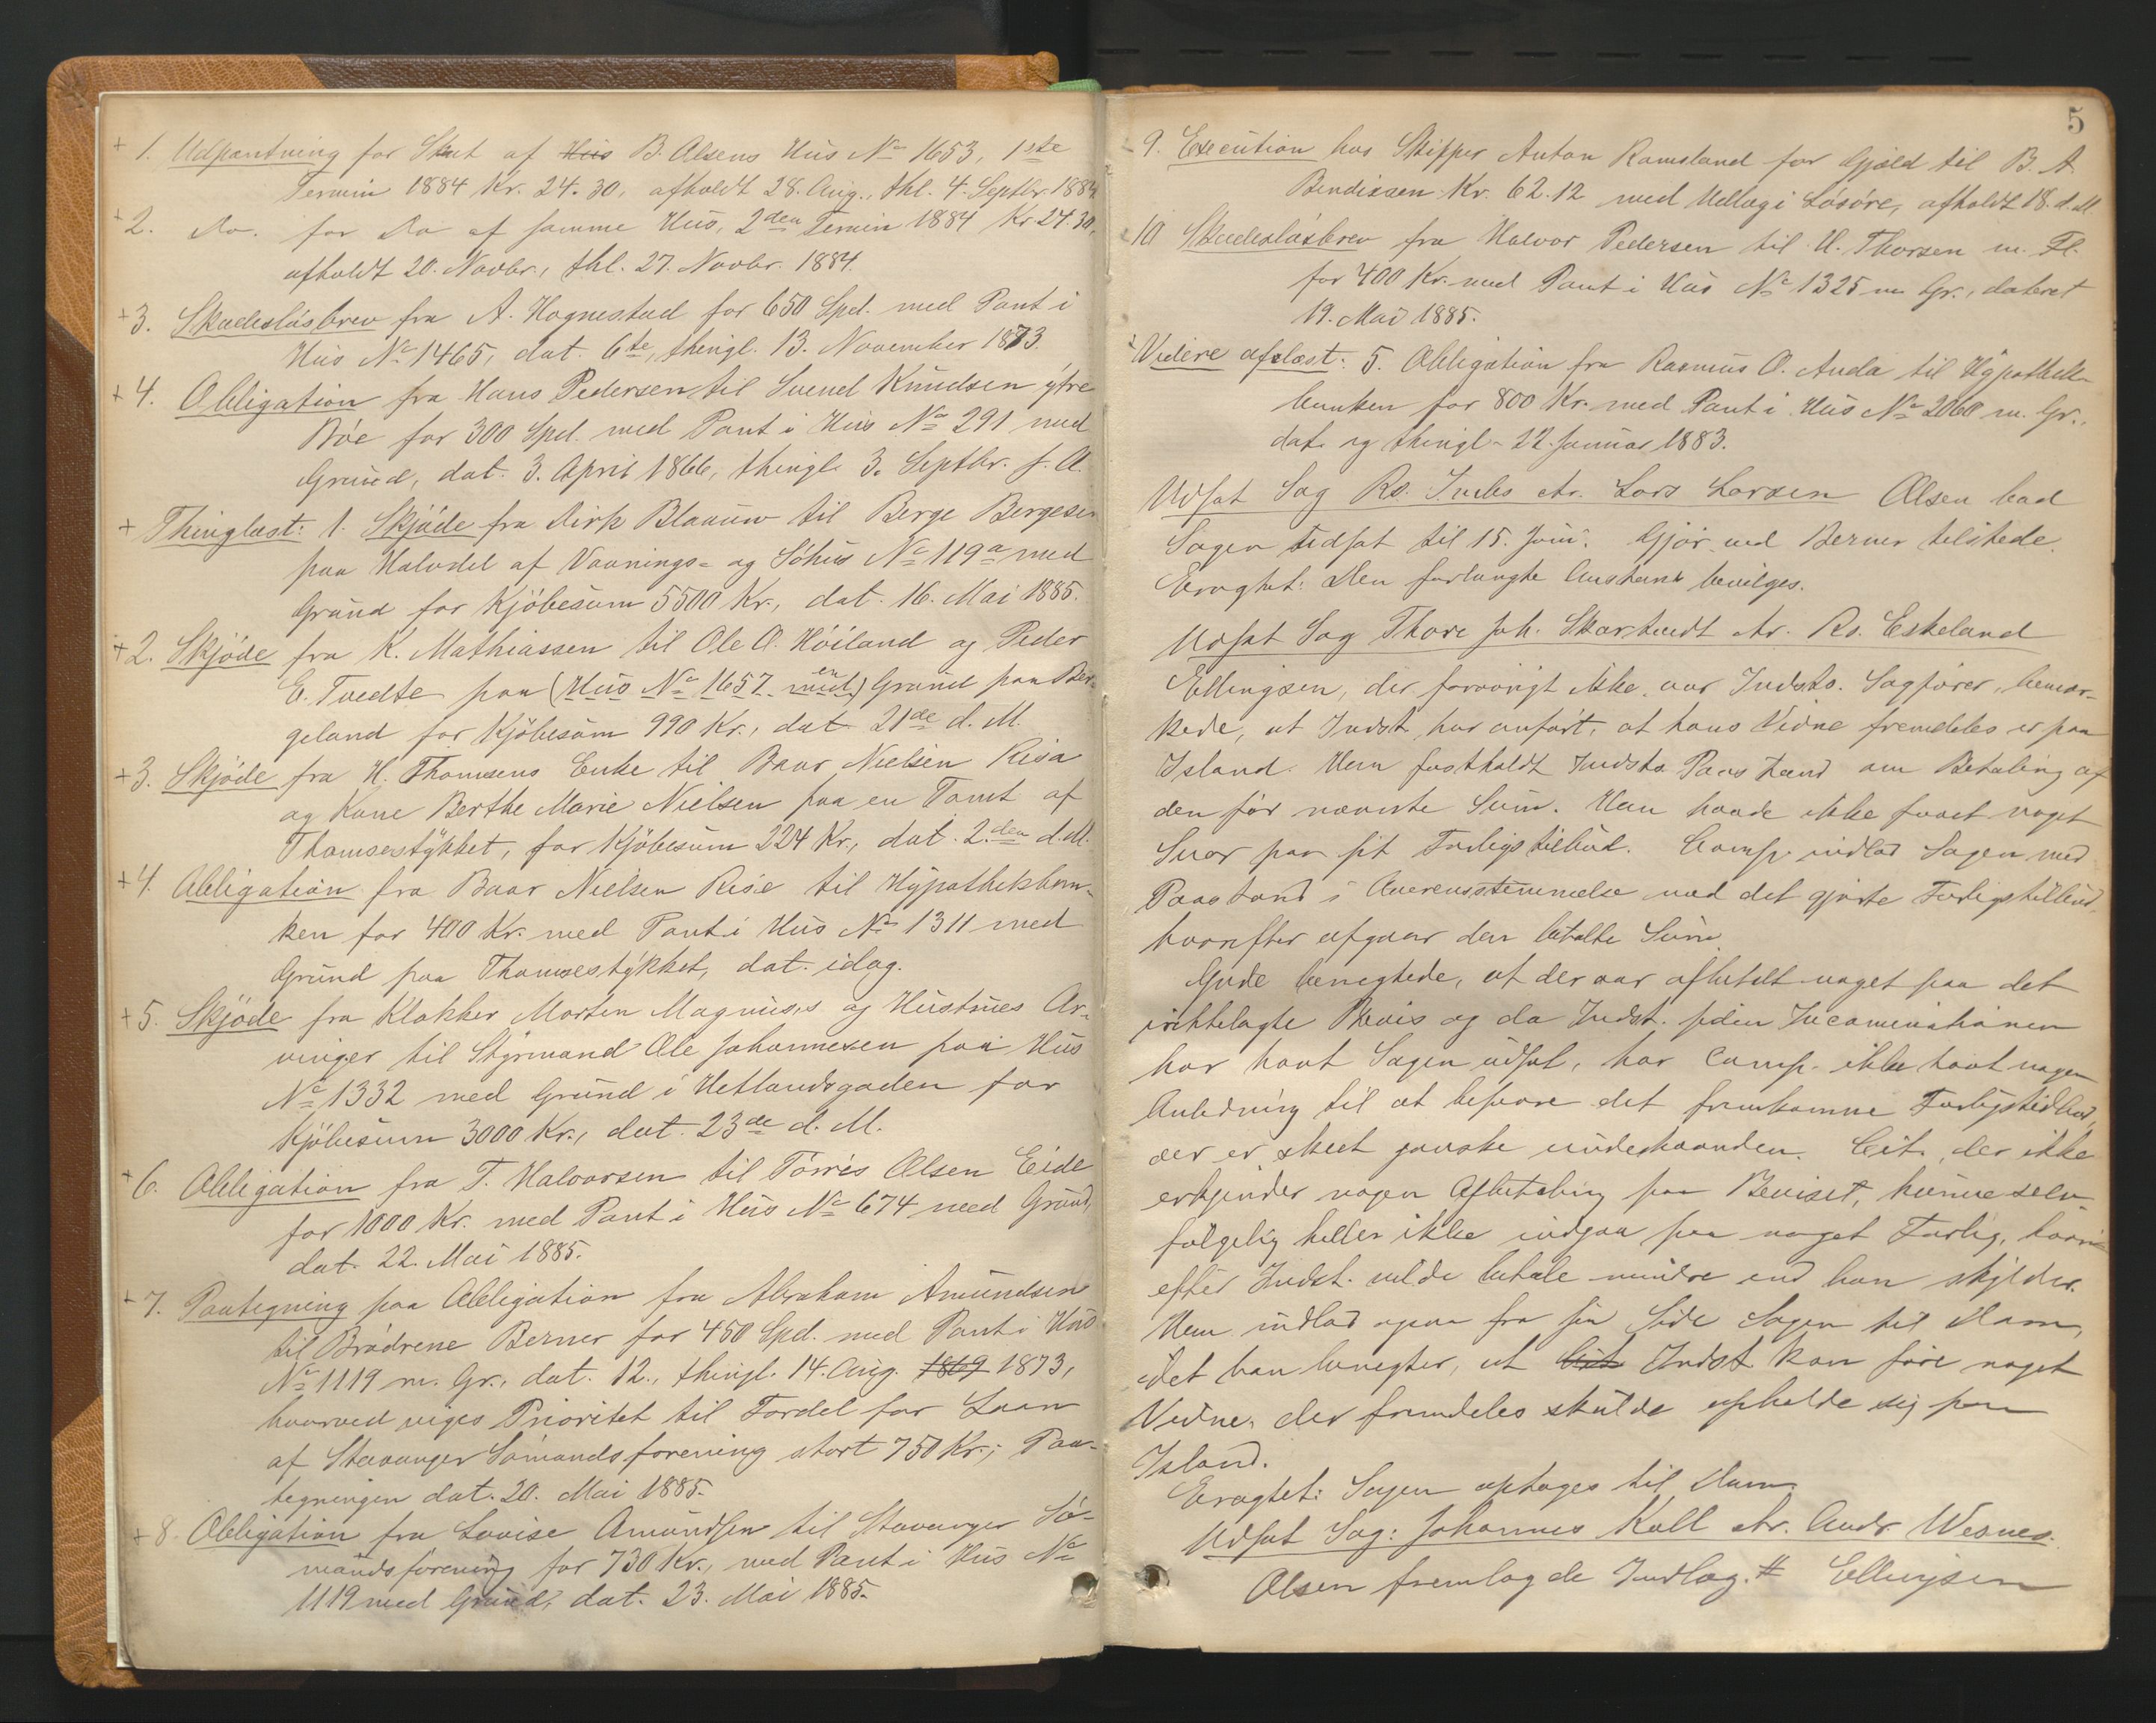 + 1. Udpantning for Skat af Hus B. Olsens Hus No 1653, 1ste
Termin 1884 Kr. 24.30, afholdt 28. Aug., thl. 4. Septbr. 1884
+ 2. Do. for Do af samme Hus, 2den Termin 1884 Kr 24.30,
afholdt 20. Novbr., thl. 27. Novbr. 1884.
+ 3. Skadesløsbrev fra A. Hognestad for 650 Spd. med Pant i
Hus No 1465, dat. 6te, thingl. 13. November 1873.
+ 4. Obligation fra Hans Pedersen til Svend Knudsen ytre
Bøe for 300 Spd. med Pant i Hus No 291 med
Grund, dat. 3. April 1866, thingl. 3. Septbr. s. A.
+ Thinglæst: 1. Skjøde fra Dirk Blaauw til Berge Bergesen
paa Halvdel af Vaanings- og Søhus No 119a med
Grund for Kjøbesum 5500 Kr., dat. 16. Mai 1885.
+ 2. Skjøde fra K. Mathiassen til Ole O. Høiland og Peder
E. Tvedte paa (Hus No 1657 med) en Grund paa Ber-
geland for Kjøbesum 990 Kr., dat. 21de d. M.
+ 3. Skjøde fra H. Thomsens Enke til Baar Nielsen Risa
og Kone Berthe Marie Nielsen paa en Tomt af
Thomsestykket, for Kjøbesum 224 Kr., dat. 2.den d. M.
+ 4. Obligation fra Baar Nielsen Rise til Hypothekban-
ken for 400 Kr. med Pant i Hus No 1311 med
Grund paa Thomsestykket, dat. idag.
+ 5. Skjøde fra Klokker Morten Magnus's og Hustrues Ar-
vinger til Styrmand Ole Johannesen paa Hus
No 1332 med Grund i Hetlandsgaden for
Kjøbesum 3000 Kr., dat. 23de d. M.
+ 6. Obligation fra T. Halvorsen til Tørris Olsen Eide
for 1000 Kr. med Pant i Hus No 674 med Grund,
dat. 22. Mai 1885.
+ 7. Paategning paa Obligation fra Abraham Amundsen
til Brødrene Berner for 450 Spd. med Pant i Hus
No 1119 m. Gr., dat. 12., thingl. 14. Aug. 1869 1873,
hvorved viges Prioritet til Fordel for Laan
af Stavanger Sømandsforening stort 750 Kr.; Paa-
tegningen dat. 20. Mai 1885.
+ 8. Obligation fra Lovise Amundsen til Stavanger Sø-
mandsforening for 730 Kr., med Pant i Hus No
1119 med Grund, dat. 23. Mai 1885.
5
9. Execution hos Skipper Anton Ramsland for Gjæld til B. A.
Bendixsen Kr. 62.12 med Udlæg i Løsøre, afholdt 18. d. M.
10 Skadesløsbrev fra Halvor Pedersen til H. Thorsen m. Fl.
for 400 Kr. med Pant i Hus No 1325 m Gr., dateret
19. Mai 1885.
Videre aflæst: 5. Obligation fra Rasmus O. Auda til Hypothek-
banken for 800 Kr. med Pant i Hus No 2060 m. Gr.,
dat. og thingl. 22. Januar 1883.
Udsat Sag Rs. Ctr. Lars Larsen Olsen bad
Sagen udsat til 15. Juni. Gjør ved Berner tilstede.
Eragtet: Den forlangte Anstand bevilges.
Udsat Sag Thore Joh. Skartvedt Ctr. Rs. Eskeland
Ellingsen, der forøvrigt ikke var Indsts. Sagfører, bemær-
kede, at Indst. har anført, at hans Vidne fremdeles er paa
Island. Han fastholdt Indsts Paastand om Betaling af
den før nævnte Sum. Han havde ikke faaet noget
Svar paa sit Forligstilbud. Comp. indlod Sagen med
Paastand i Overensstemmelse med det gjorte Forligstilbud,
hvorefter afgaar den betalte Sum.
Gude benegtede, at der var afbetalt noget paa det
irettelagte Bevis og da Indst. siden Incaminationen
har havt Sagen udsat, har Comp. ikke havt nogen
Anledning til at besvare det fremkomne Forligstilbud,
der er skeet ganske underhaanden. Cit., der ikke
erkjender nogen Afbetaling paa Beviset, kunne selv-
følgelig heller ikke indgaa paa noget Forlig, hvor-
efter Indst. vilde betale mindre end han skylder.
Han indlod ogsaa fra sin Side Sagen til Dom,
idet han benegter, at Cit. Indst kan føre noget
Vidne, der fremdeles skulde opholde sig paa
Island.
Eragtet: Sagen optages til Dom.
Udsat Sag: Johannes Kall Ctr. Andr. Wesnes.
Olsen fremlagde Indlæg. # Ellingsen